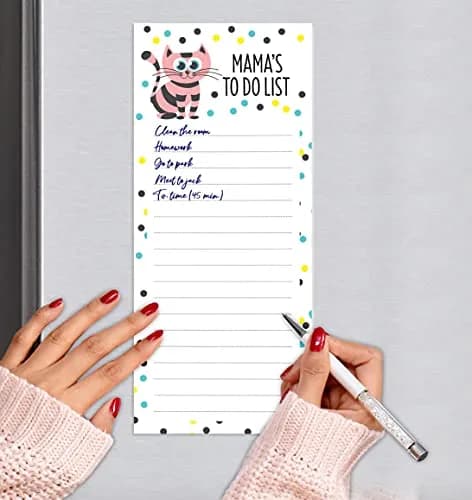 MAMA'S
TO DO LIST
Clean the room
Homework
Go to park
Meet to jack
To-time (45 min)